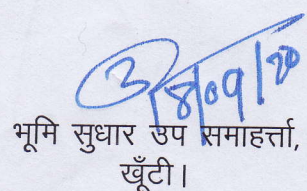 18/09/20
भूमि सुधार उप समाहर्त्ता,
खूँटी।